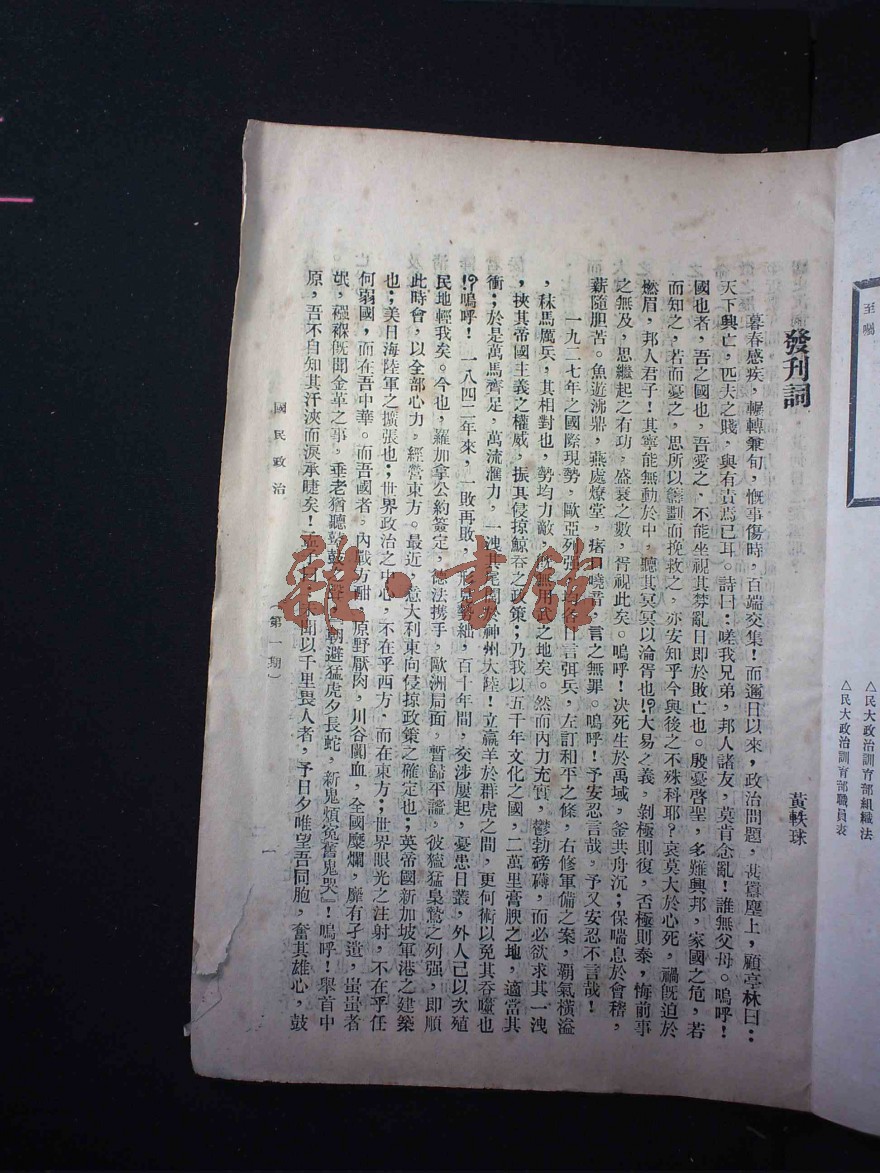 至囑
△民大政治訓育部組織法
△民大政治訓育部職員表
發刊詞
黃軼球
暮春感疾，輾轉兼旬，慨事傷時，百端交集！而邇日以來，政治問題，甚囂塵上，顧亭林曰：
天下興亡，匹夫之賤，與有責焉已耳。詩曰：嗟我兄弟，邦人諸友，莫肯念亂！誰無父母。嗚呼！
國也者，吾之國也，吾愛之，不能坐視其棼亂日即於敗亡也。殷憂啓聖，多難興邦，家國之危，若
而知之，若而憂之，思所以籌劃而挽救之，亦安知乎今與後之不殊科耶？哀莫大於心死，禍旣迫於
燃眉，邦人君子！其寧能無動於中，聽其冥冥以淪胥也！？大易之義，剝極則復，否極則泰，悔前事
之無及，思繼起之有功，盛衰之數，胥視此矣。嗚呼！决死生於禹域，釜共舟沉；保喘息於會稽，
薪隨胆苦。魚遊沸鼎，燕處燎堂，瘏口嘵音，言之無罪。嗚呼！予安忍言哉，予又安忍不言哉！
一九二七年之國際現勢，歐亞列强，各日言弭兵，左訂和平之條，右修軍備之案，覇氣橫溢
，秣馬厲兵，其相對也，勢均力敵，無用武之地矣。然而內力充實，鬱勃磅礴，而必欲求其一洩
，挾其帝國主義之權威，振其侵掠鯨吞之政策；乃我以五千年文化之國，二萬里膏腴之地，適當其
衝；於是萬馬齊足，萬流滙力，一洩其尾閭於神州大陸！立羸羊於群虎之間，更何術以免其吞噬也
！？嗚呼！一八四二年來，一敗再敗，形見勢絀，百十年間，交涉屢起，憂患日叢，外人已以次殖
民地輕我矣。今也，羅加拿公約簽定，德法携手，歐洲局面，暫歸平謐，彼獊猛梟鷙之列强，即順
此時會，以全部心力，經營東方。最近，意大利東向侵掠政策之確定也；英帝國新加坡軍港之建築
也；美日海陸軍之擴張也；世界政治之中心，不在乎西方，而在東方；世界眼光之注射，不在乎任
何弱國，而在吾中華。而吾國者，內戰方酣，原野厭肉，川谷闐血，全國糜爛，靡有孑遺，蚩蚩者
氓，襁褓旣聞金革之事，垂老猶聽鼙鼓朝避猛虎夕長蛇，新鬼煩寃舊鬼哭』！嗚呼！舉首中
原，吾不自知其汗浹而淚承睫矣！孟子曰聞以千里畏人者，予日夕唯望吾同胞，奮其雄心，鼓
國民政治
（第一期）
一